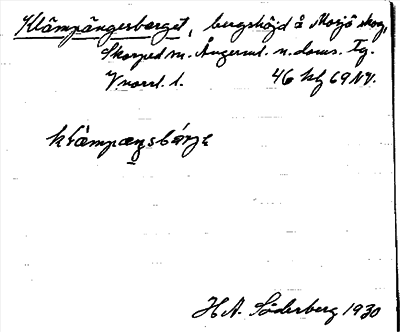 Klämpängerberget, bergshöjd å Skorpå skog,
Skorped sn. Ångerml. n. doms. Tg.
Vnorrl. l. 46 kf 69 NV.
klämpæŋsbárjə
H.A. Söderberg 1930